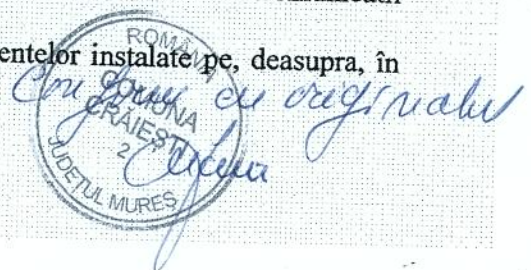 entelor instalate pe, deasupra, în
Conform cu originalul
ROMÂNIA
COMUNA
CRĂIEȘTI
2
JUDEȚUL MUREȘ